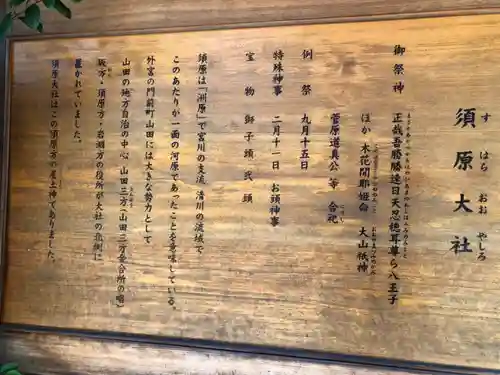 須原大社
すはらおおやしろ
御祭神
正哉吾勝勝速日天忍穂耳尊ら八王子
ほか 木花開耶姫命 大山祇神
菅原道真公等 合祀
例祭 九月十五日
特殊神事 二月十一日 お頭神事
宝物 獅子頭 弐頭
須原は「洲原」で宮川の支流 清川の流域で
このあたりが一面の河原であったことを意味している。
外宮の門前町山田には大きな勢力として
山田の地方自治の中心 山田三方(山田三方会合所の唱)
坂方・須原方・岩淵方の役所が大社の北側に
置かれていました。
須原大社はこの須原方の産土神でありました。